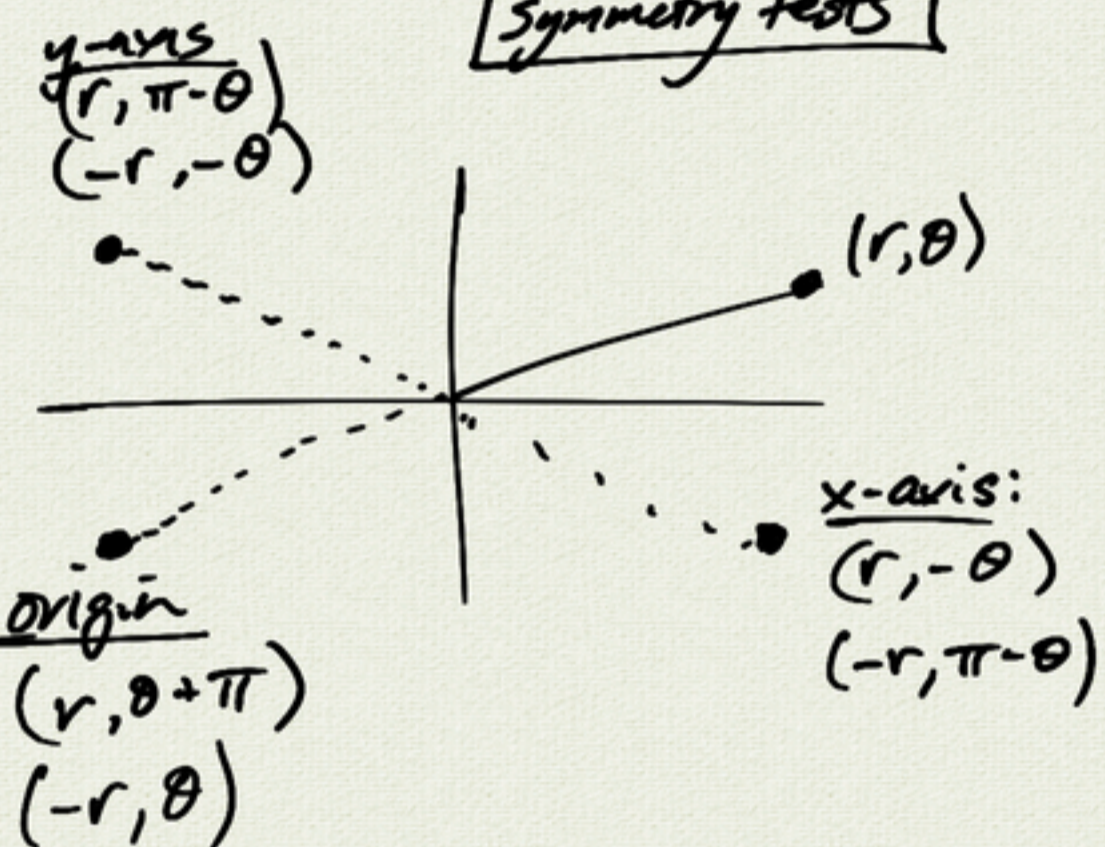 Symmetry tests
y-axis
(r, π-θ)
(-r, -θ)
(r, θ)
x-axis:
(r, -θ)
(-r, π-θ)
origin
(r, θ+π)
(-r, θ)